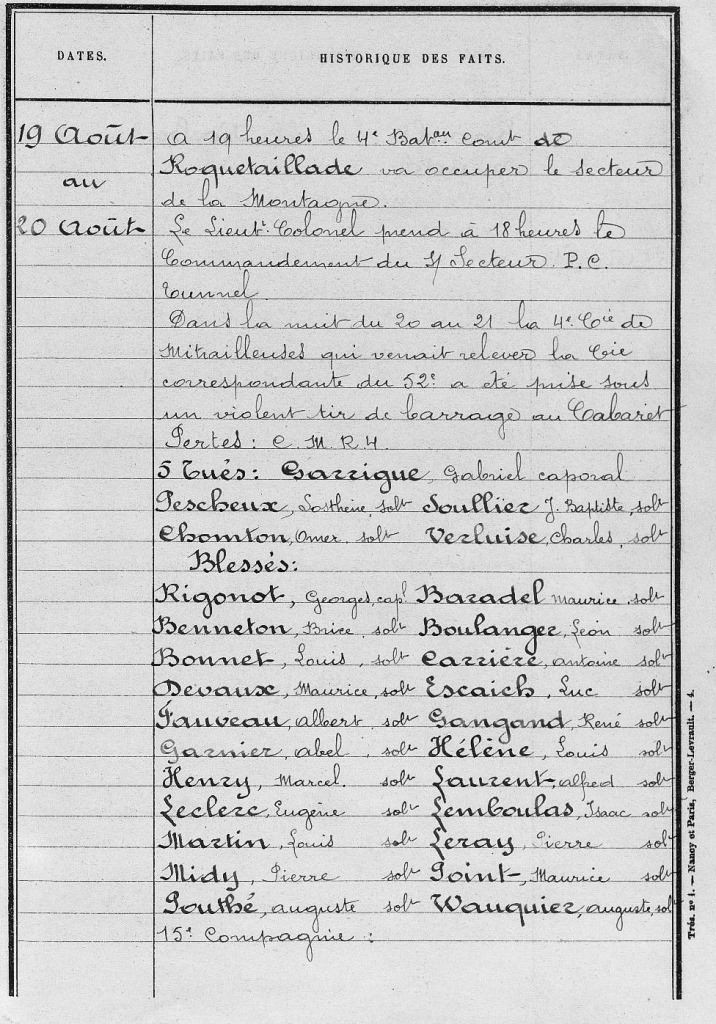 DATES.
HISTORIQUE DES FAITS.
19 Août
au
20 Août
A 19 heures le 4e Batau Comt de
Roquetaillade va occuper le secteur
de la Montagne.
Le Lieutt Colonel prend à 18 heures le
Commandement du S/ Secteur. P.C.
Tunnel.
Dans la nuit du 20 au 21 la 4e Cie de
Mitrailleuses qui venait relever la Cie
correspondante du 52e a été prise sous
un violent tir de barrage au Cabaret
Pertes: C M R 4.
5 Tués: Garrigue, Gabriel caporal
Pescheux, Sosthène, solt Soullier J. Baptiste, solt
Chomton, Omer, solt Verluise, Charles, solt
Blessés:
Rigonot, Georges, capl Baradel Maurice. solt
Benneton, Brice, solt Boulanger, Léon solt
Bonnet, Louis, solt Carrière, Antoine solt
Devaux, Maurice, solt Escaich, Luc solt
Fauveau, Albert, solt Gangand, René solt
Garnier, Abel, solt Hélène, Louis solt
Henry, Marcel. solt Laurent, Alfred solt
Leclerc, Eugène solt Lemboulas, Isaac solt
Martin, Louis solt Leray, Pierre solt
Midy, Pierre solt Point, Maurice solt
Pouthé, Auguste solt Wauquier, Auguste, solt
15e Compagnie:
Trés. no 1. — Nancy et Paris, Berger-Levrault. — 4.